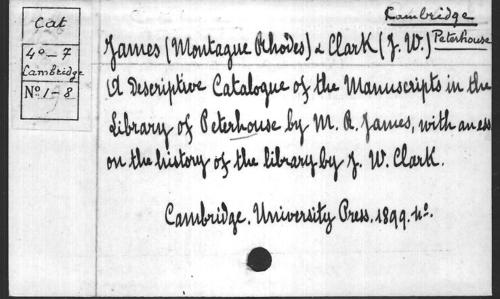 Cat
4o-7
Cambridge
No 1-8
Cambridge
Peterhouse
James (Montague Rhodes) & Clark (J. W.)
A Descriptive Catalogue of the Manuscripts in the
Library of Peterhouse by M. R. James, with an ess
on the history of the library by J. W. Clark.
Cambridge. University Press. 1899. 4o.